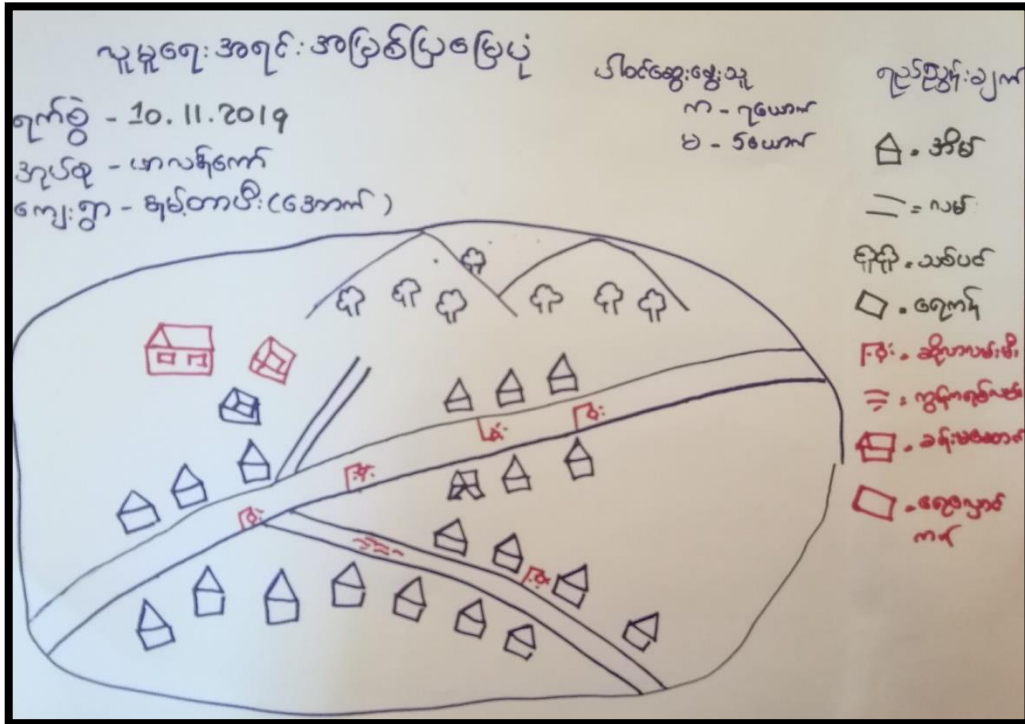 လူမှုရေးအရင်းအမြစ်ပြမြေပုံ
ရက်စွဲ - 10.11.2019
အုပ်စု - ဟာလန်ကော်
ကျေးရွာ - (အောက်)
ပါဝင်ဆွေးနွေးသူ
က - ၇ယောက်
မ - ၆ယောက်
ရည်ညွှန်းချက်
အိမ်
= လမ်း
သစ်ပင်
ရေကန်
ဆိုလာလမ်းမီး
= ကွန်ကရစ်လမ်း
ခန်းမဆောင်
ရေလှောင်
ကန်